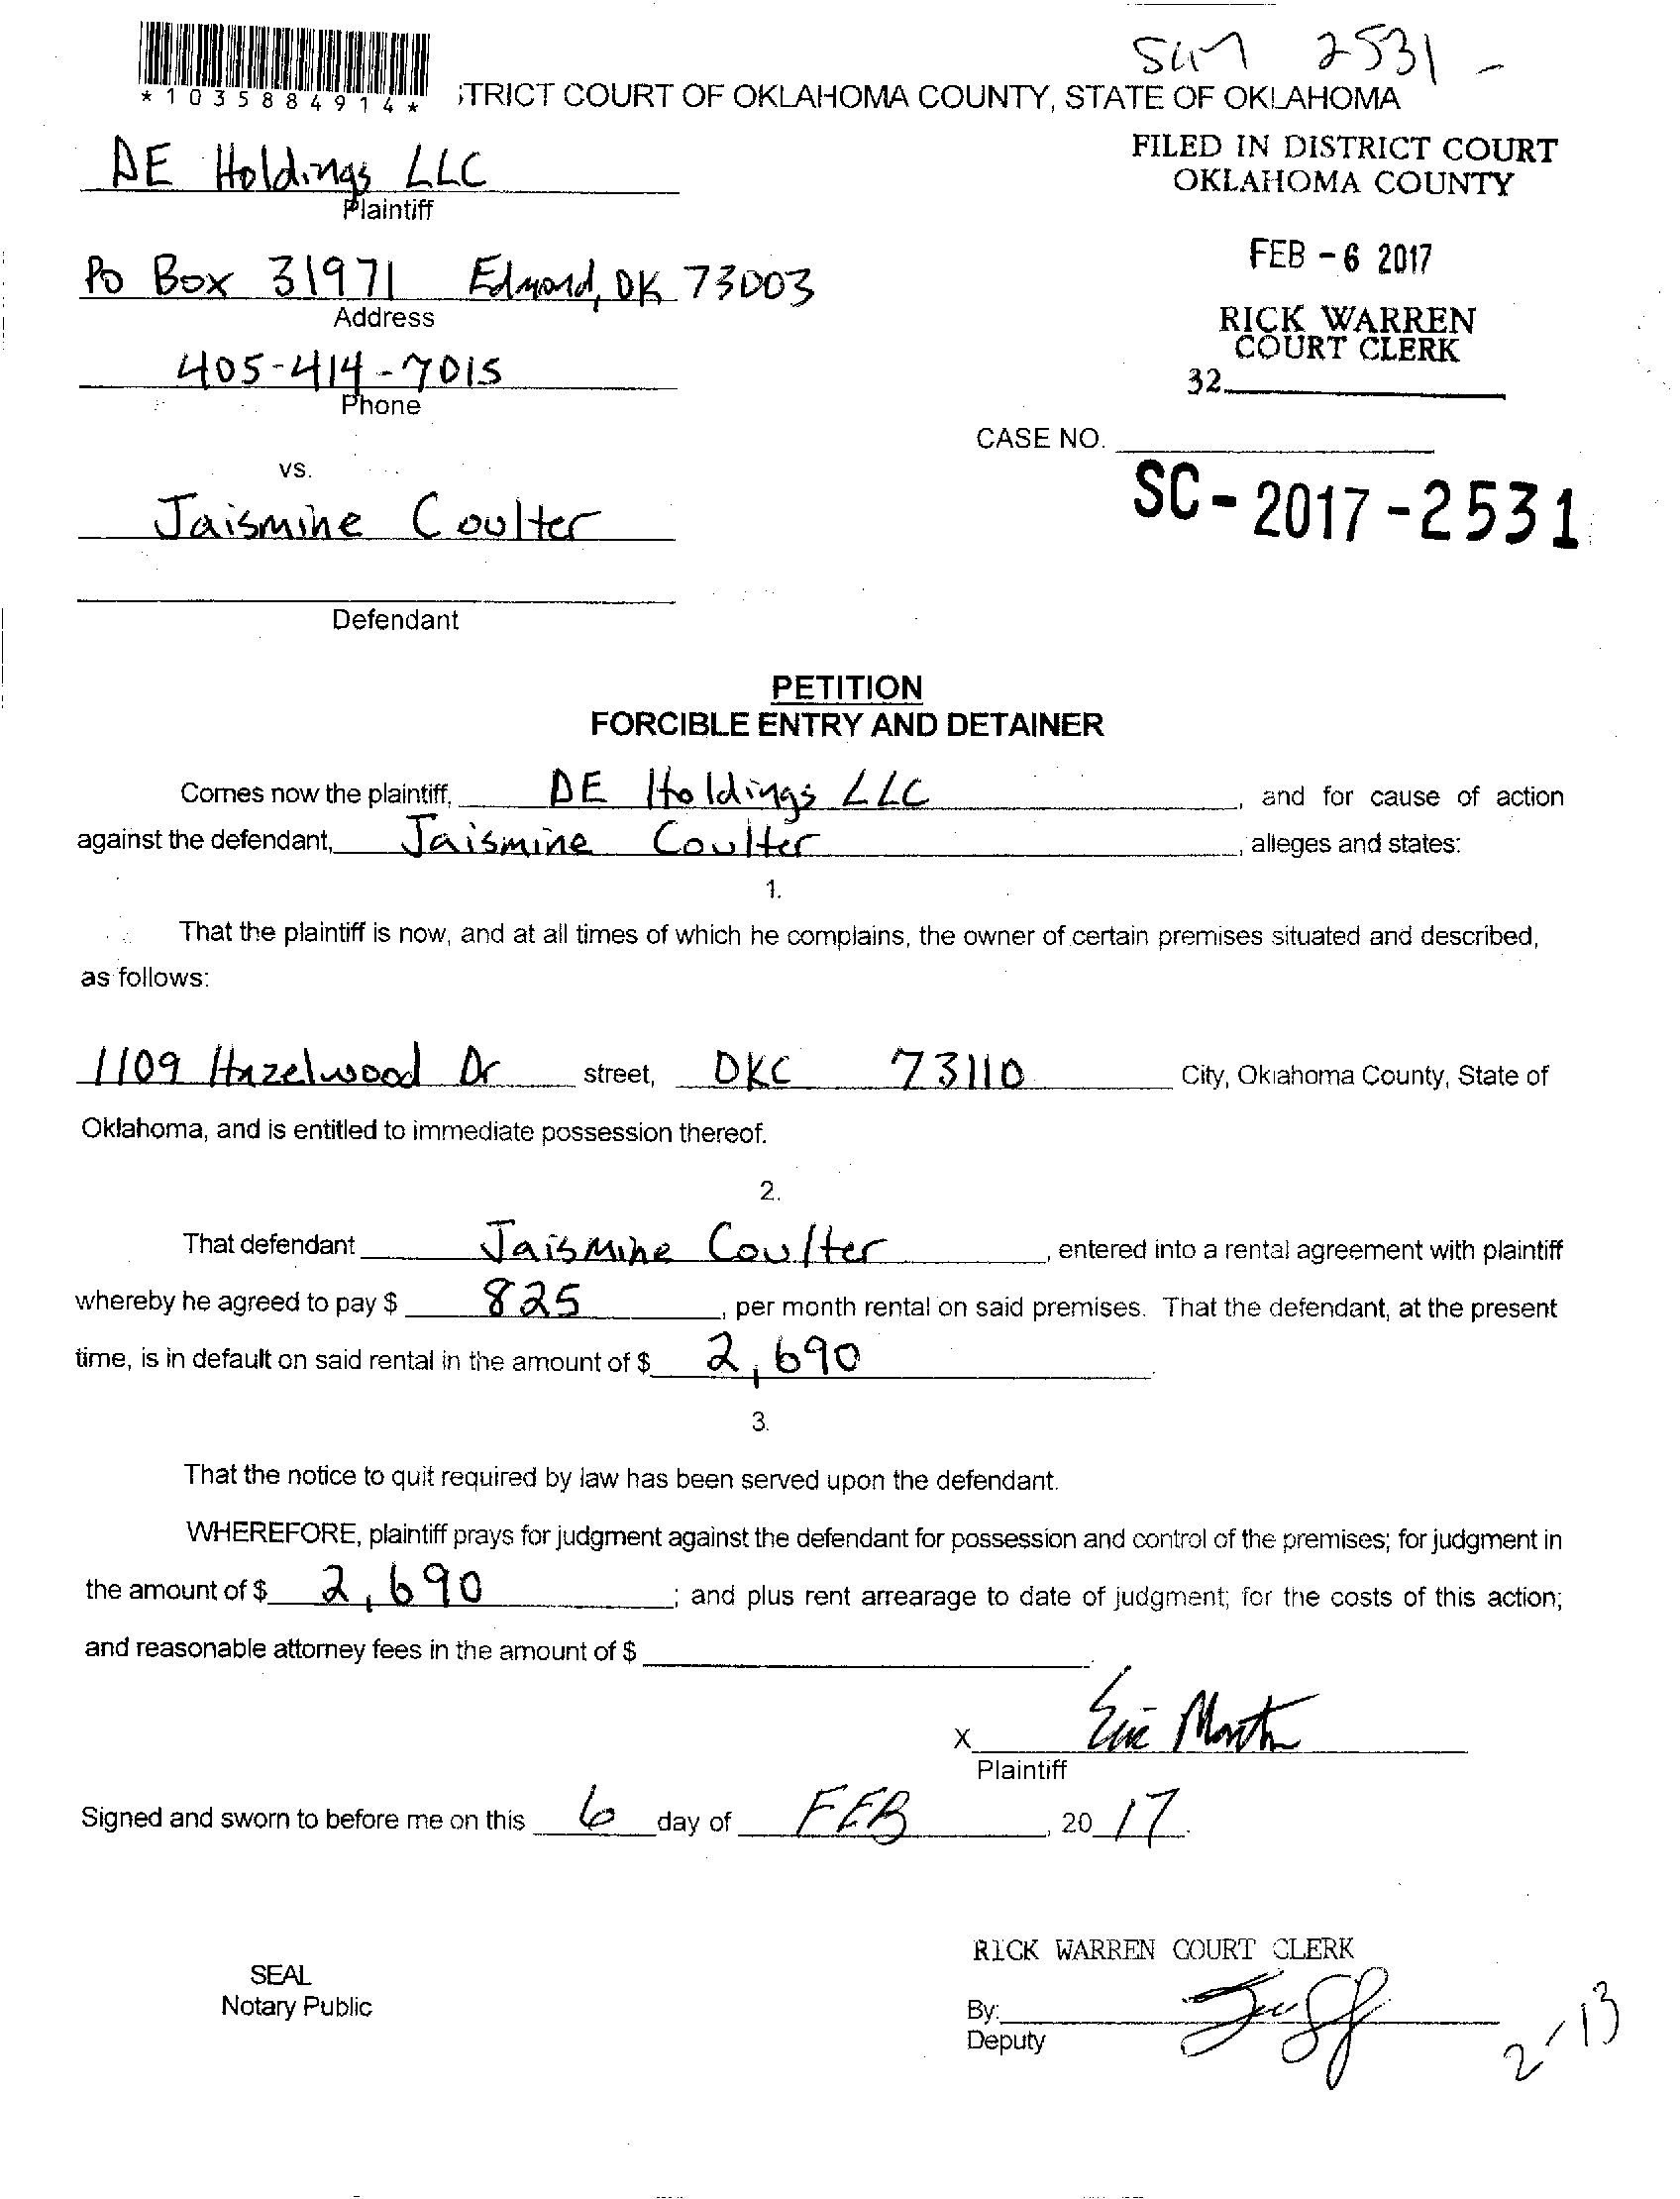 SUM 2531 -
*1035884914* STRICT COURT OF OKLAHOMA COUNTY, STATE OF OKLAHOMA
DE Holdings LLC
Plaintiff
FILED IN DISTRICT COURT
OKLAHOMA COUNTY
PO Box 31971 Edmond, OK 73003
Address
FEB - 6 2017
405-414-7015
Phone
RICK WARREN
COURT CLERK
32
CASE NO.
vs.
SC-2017-2531
Jaismine Coulter
Defendant
PETITION
FORCIBLE ENTRY AND DETAINER
Comes now the plaintiff, DE Holdings LLC, and for cause of action
against the defendant, Jaismine Coulter, alleges and states:
1.
That the plaintiff is now, and at all times of which he complains, the owner of certain premises situated and described,
as follows:
1109 Hazelwood Dr street, OKC 73110 City, Oklahoma County, State of
Oklahoma, and is entitled to immediate possession thereof.
2.
That defendant Jaismine Coulter, entered into a rental agreement with plaintiff
whereby he agreed to pay $ 825, per month rental on said premises. That the defendant, at the present
time, is in default on said rental in the amount of $ 2,690.
3.
That the notice to quit required by law has been served upon the defendant.
WHEREFORE, plaintiff prays for judgment against the defendant for possession and control of the premises; for judgment in
the amount of $ 2,690; and plus rent arrearage to date of judgment; for the costs of this action;
and reasonable attorney fees in the amount of $ .
X
Plaintiff
Signed and sworn to before me on this 6 day of FEB, 20 17.
RICK WARREN COURT CLERK
SEAL
Notary Public
By:
Deputy
2-13